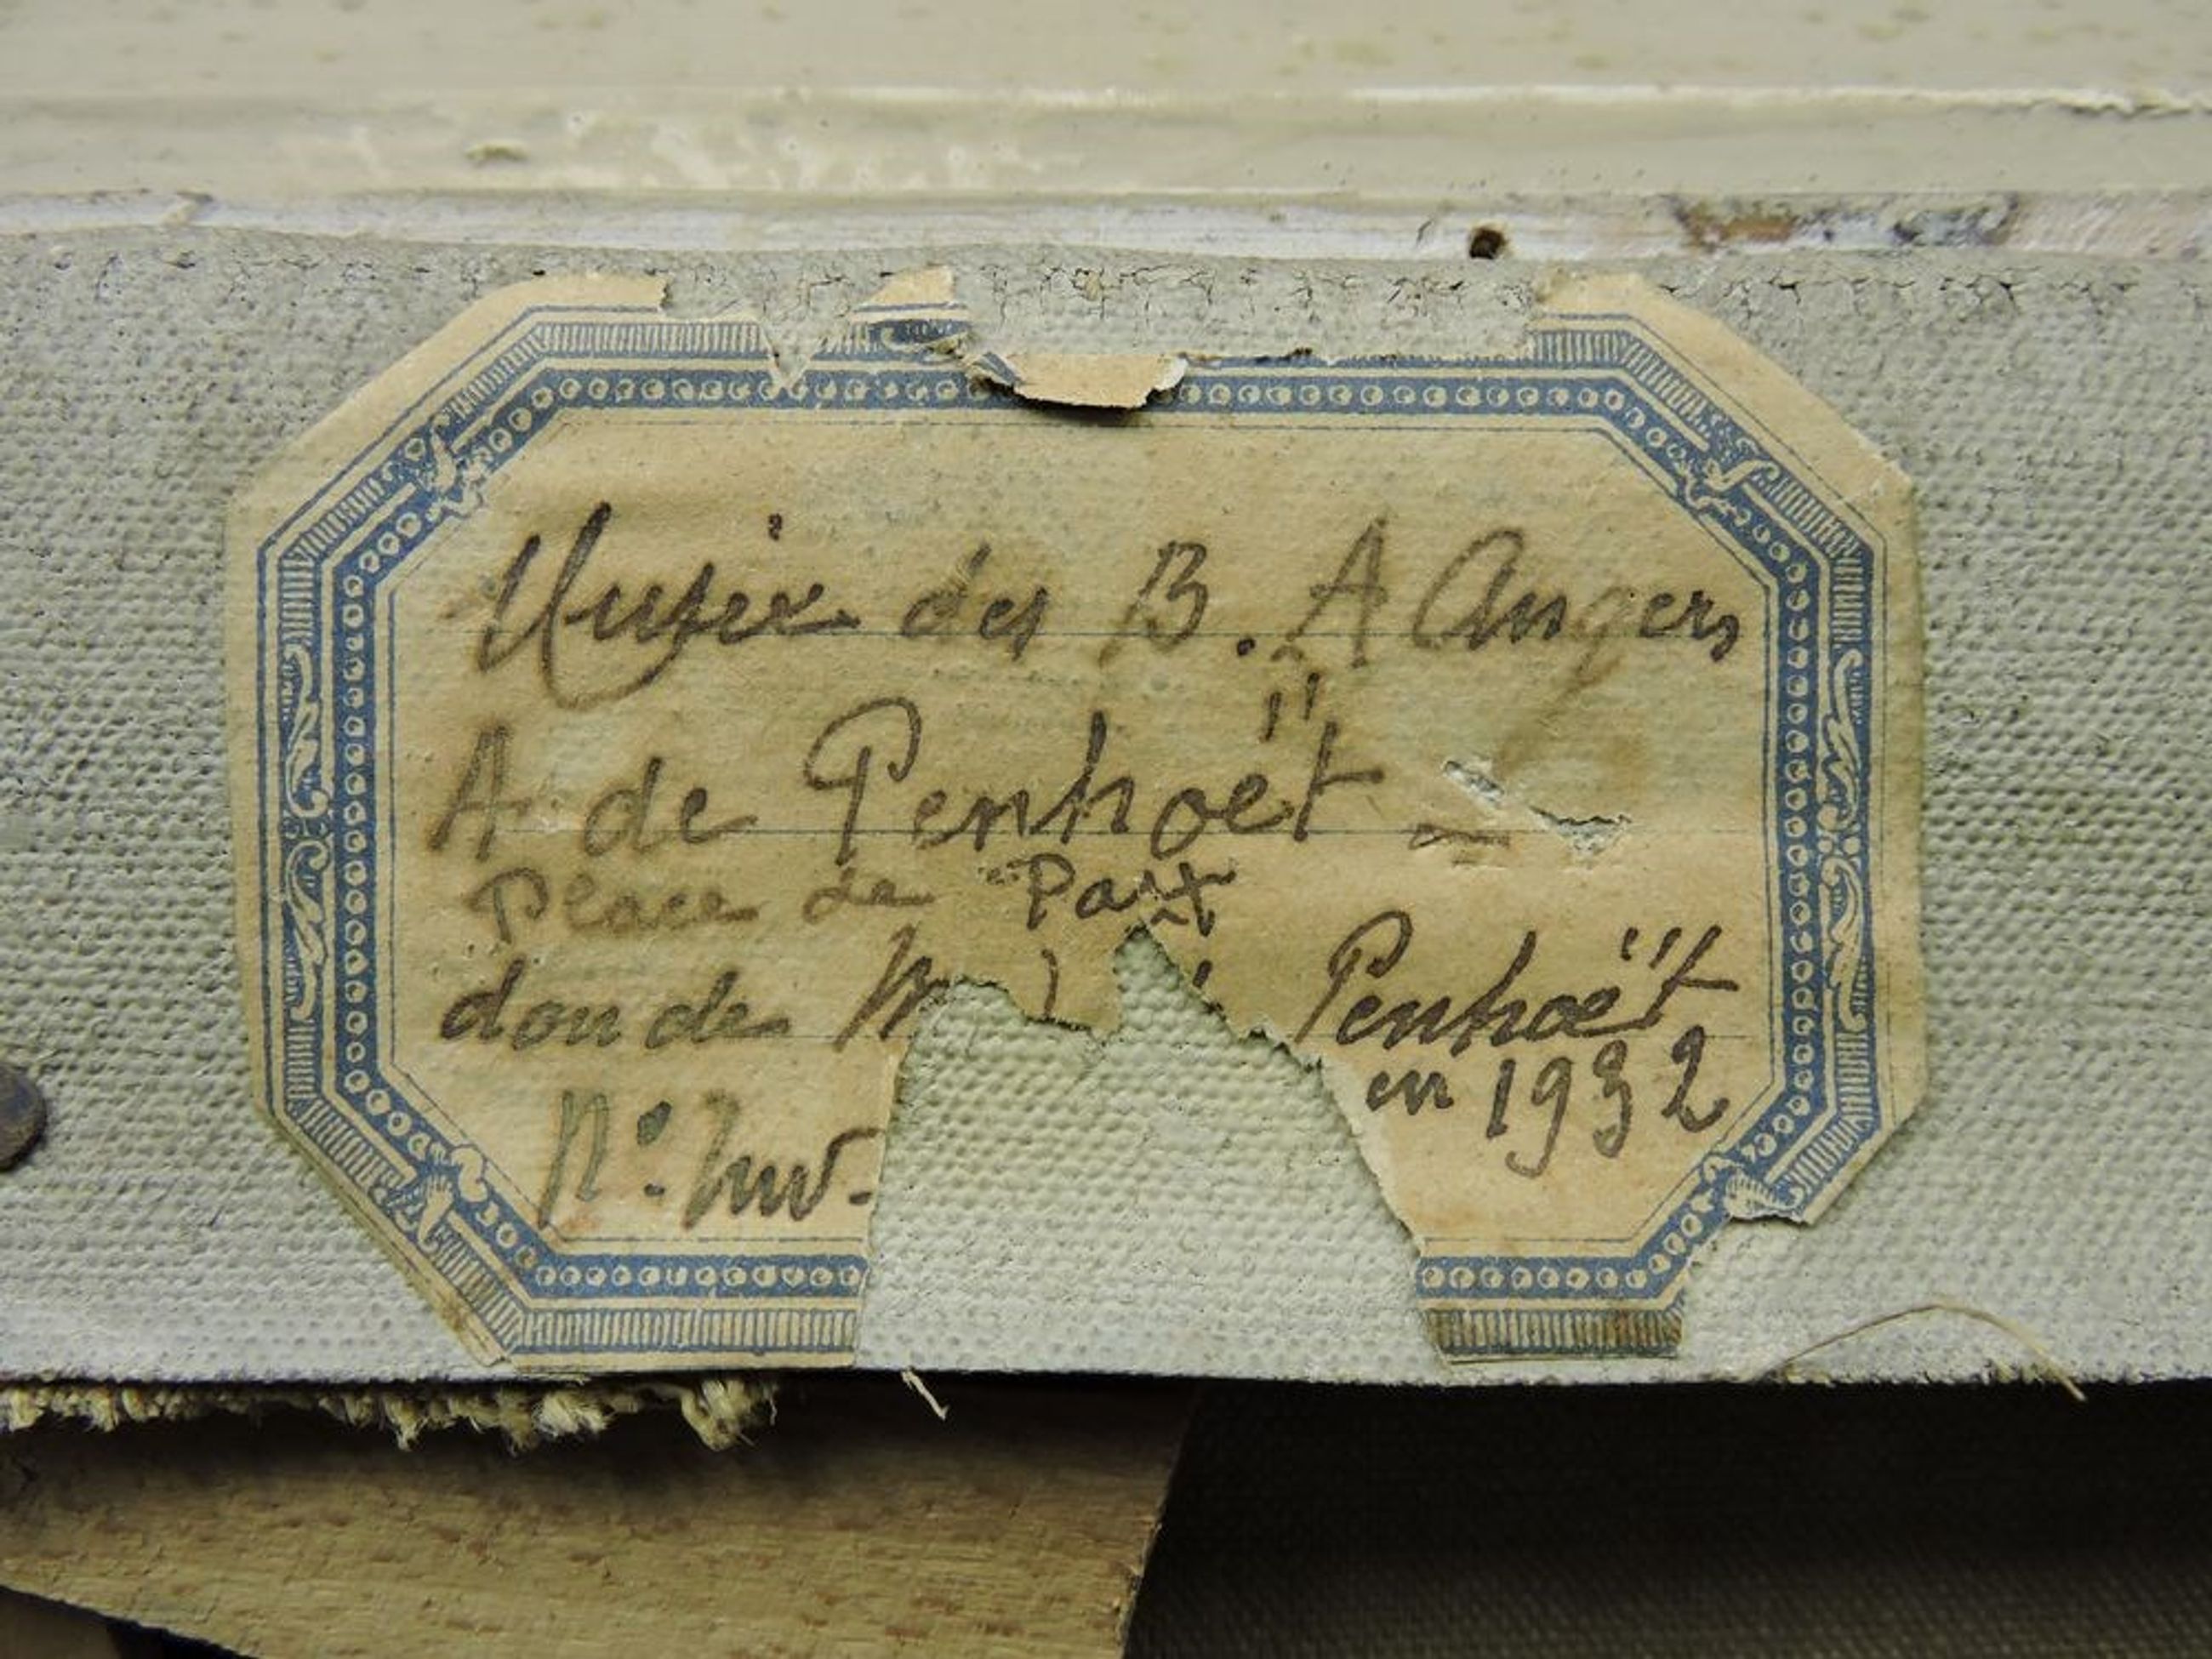 Musée des B. A Angers
A de Penhoët —
Place de Paix
don de M Penhoët
en 1932
N° Inv.